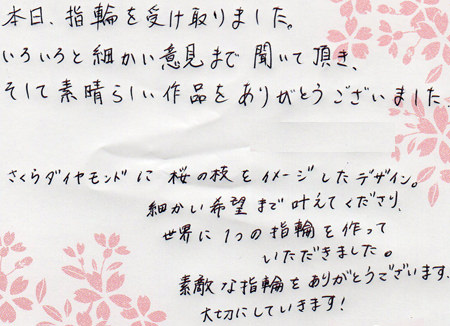 本日、指輪を受け取りました。
いろいろと細かい意見まで聞いて頂き、
そして素晴らしい作品をありがとうございました。
さくらダイヤモンドに桜の枝をイメージしたデザイン。
細かい希望まで叶えてくださり、
世界に1つの指輪を作って
いただきました。
素敵な指輪をありがとうございます。
大切にしていきます!